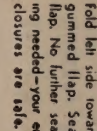 Fold left side towar
gummed flap. Sea
flap. No further sea
ing needed—your e
closures are safe.